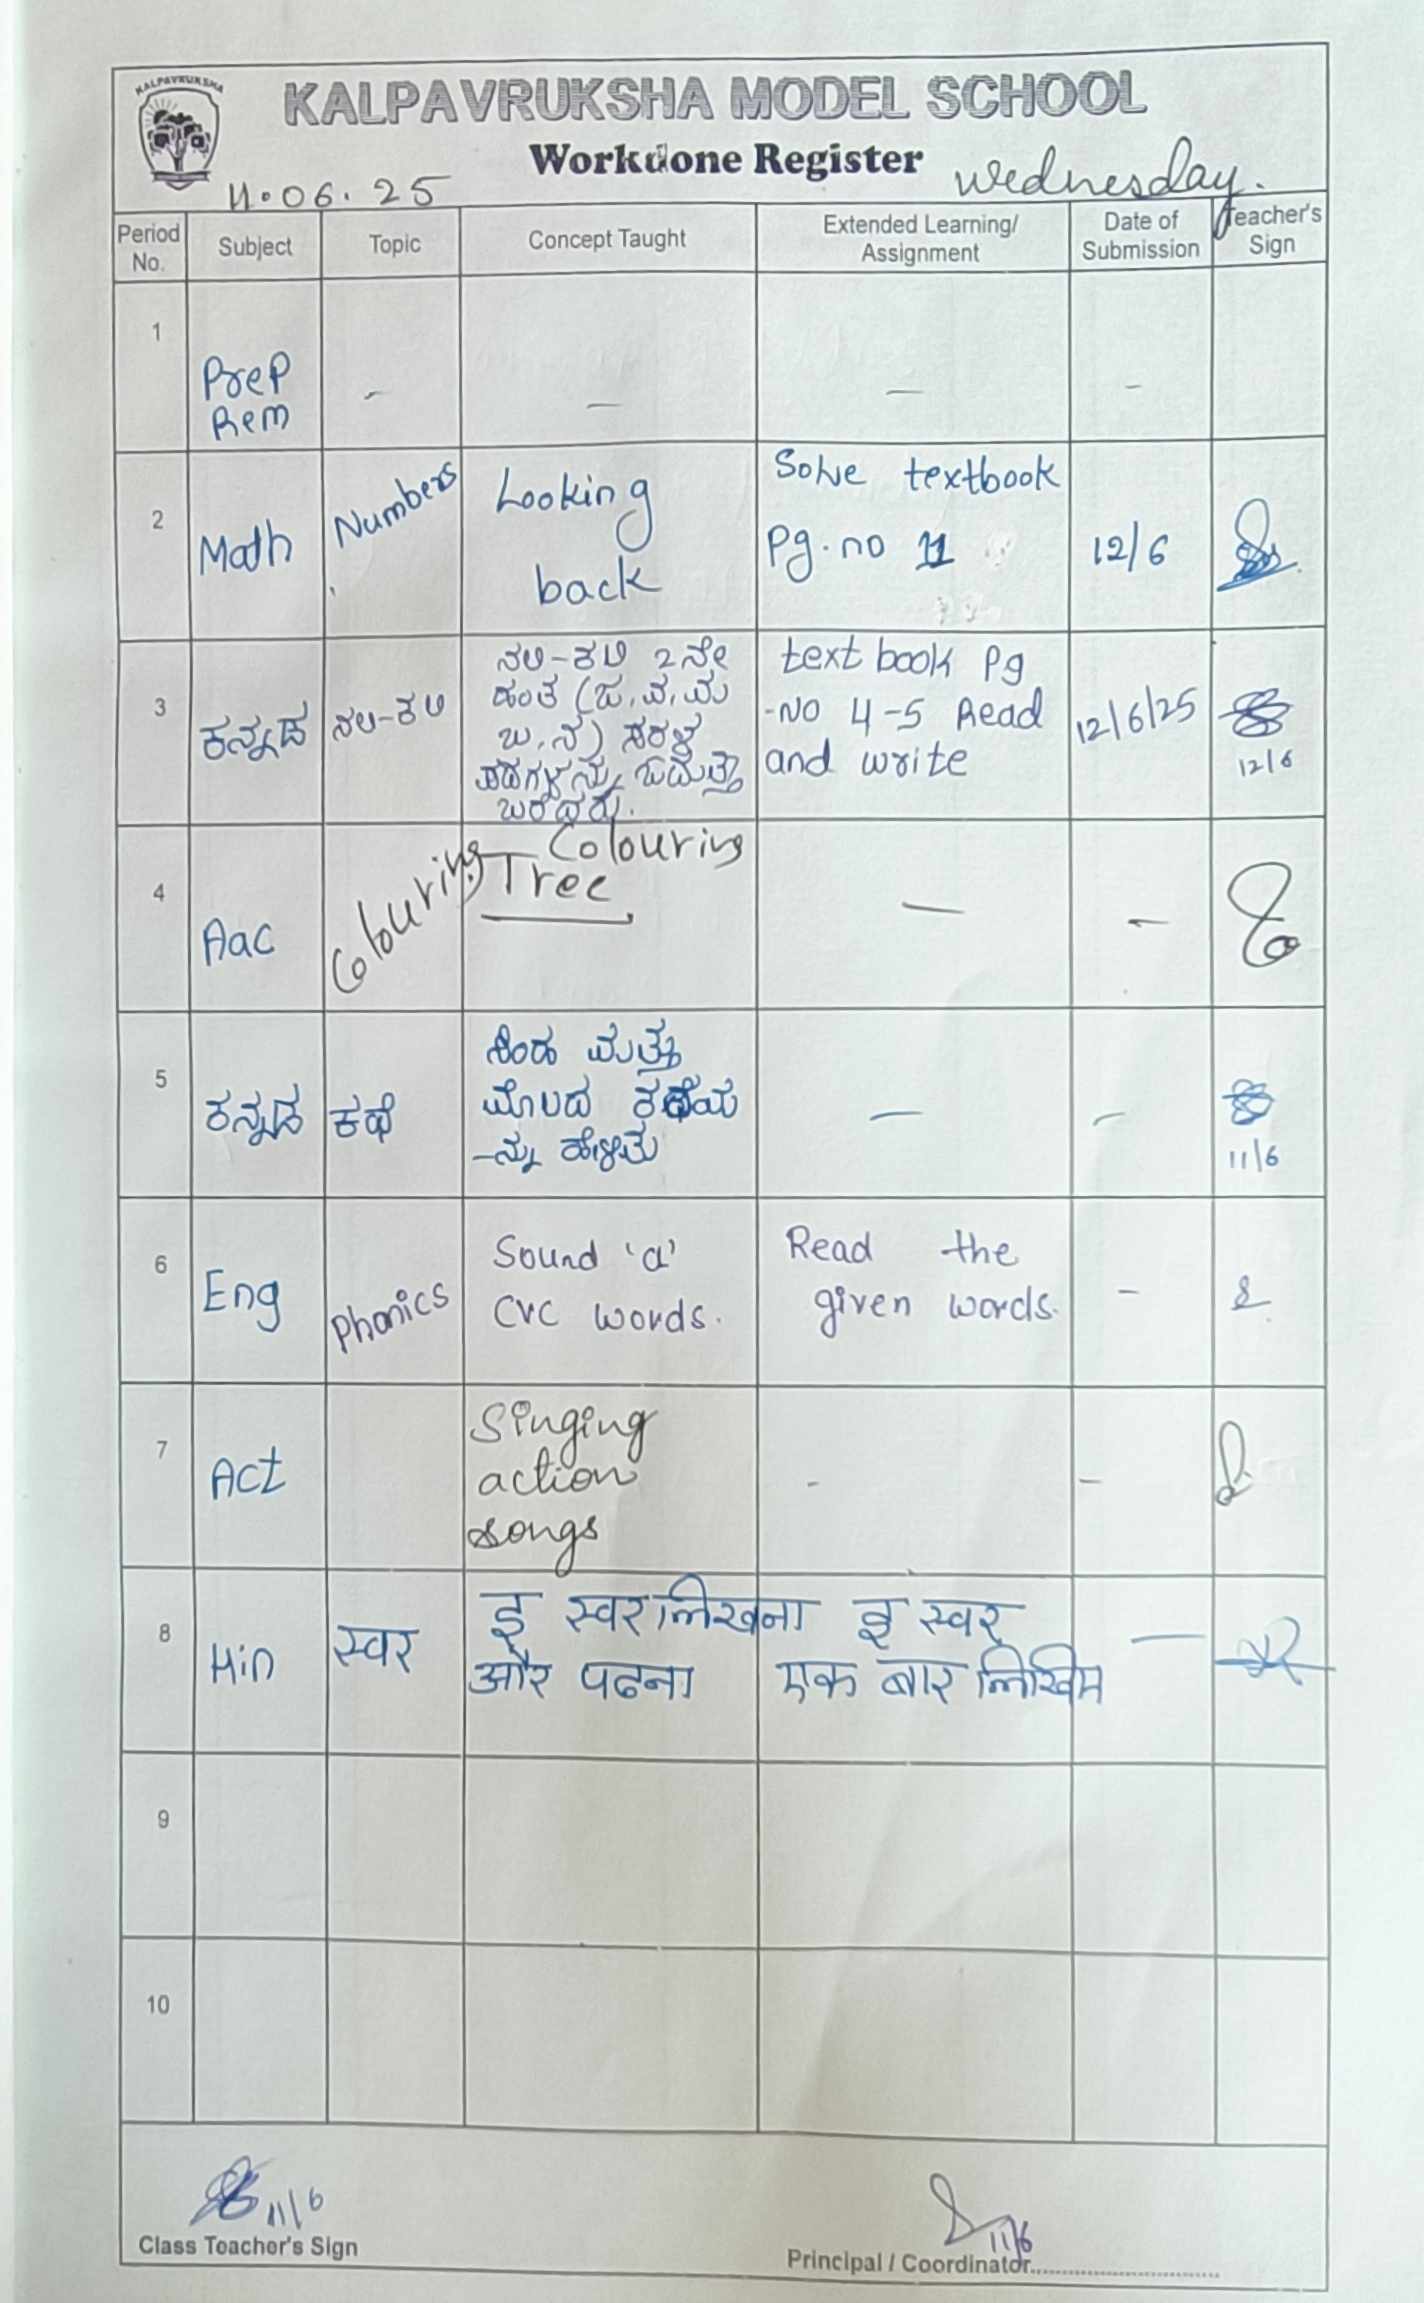 KALPAVRUKSHA
KALPAVRUKSHA MODEL SCHOOL
Workdone Register
11.06.25 Wednesday.
Period No. Subject Topic Concept Taught Extended Learning/ Assignment Date of Submission Teacher's Sign
1 Prep Rem - — — -
2 Math Numbers Looking back Solve textbook Pg.no 11 12/6
3 ಕನ್ನಡ ನಲಿ-ಕಲಿ
ನಲಿ-ಕಲಿ 2ನೇ
ಹಂತ (ಜ,ವ,ಮ
ಬ,ನ) ಸರಳ
ಪದಗಳನ್ನು ಓದುತ್ತಾ
ಬರೆದರು.
text book Pg
-NO 4-5 Read
and write
12/6/25
12/6
4 Aac Colouring
Colouring
Tree
— —
5 ಕನ್ನಡ ಕಥೆ
ಸಿಂಹ ಮತ್ತು
ಮೊಲದ ಕಥೆಯ
-ನ್ನು
— —
11/6
6 Eng Phonics
Sound 'a'
CVC words.
Read the
given words.
-
7 Act
Singing
action
songs
- -
8 Hin स्वर
इ स्वर लिखना
और पढना
इ स्वर
एक बार लिखिए
—
9
10
11/6
Class Teacher's Sign
11/6
Principal / Coordinator